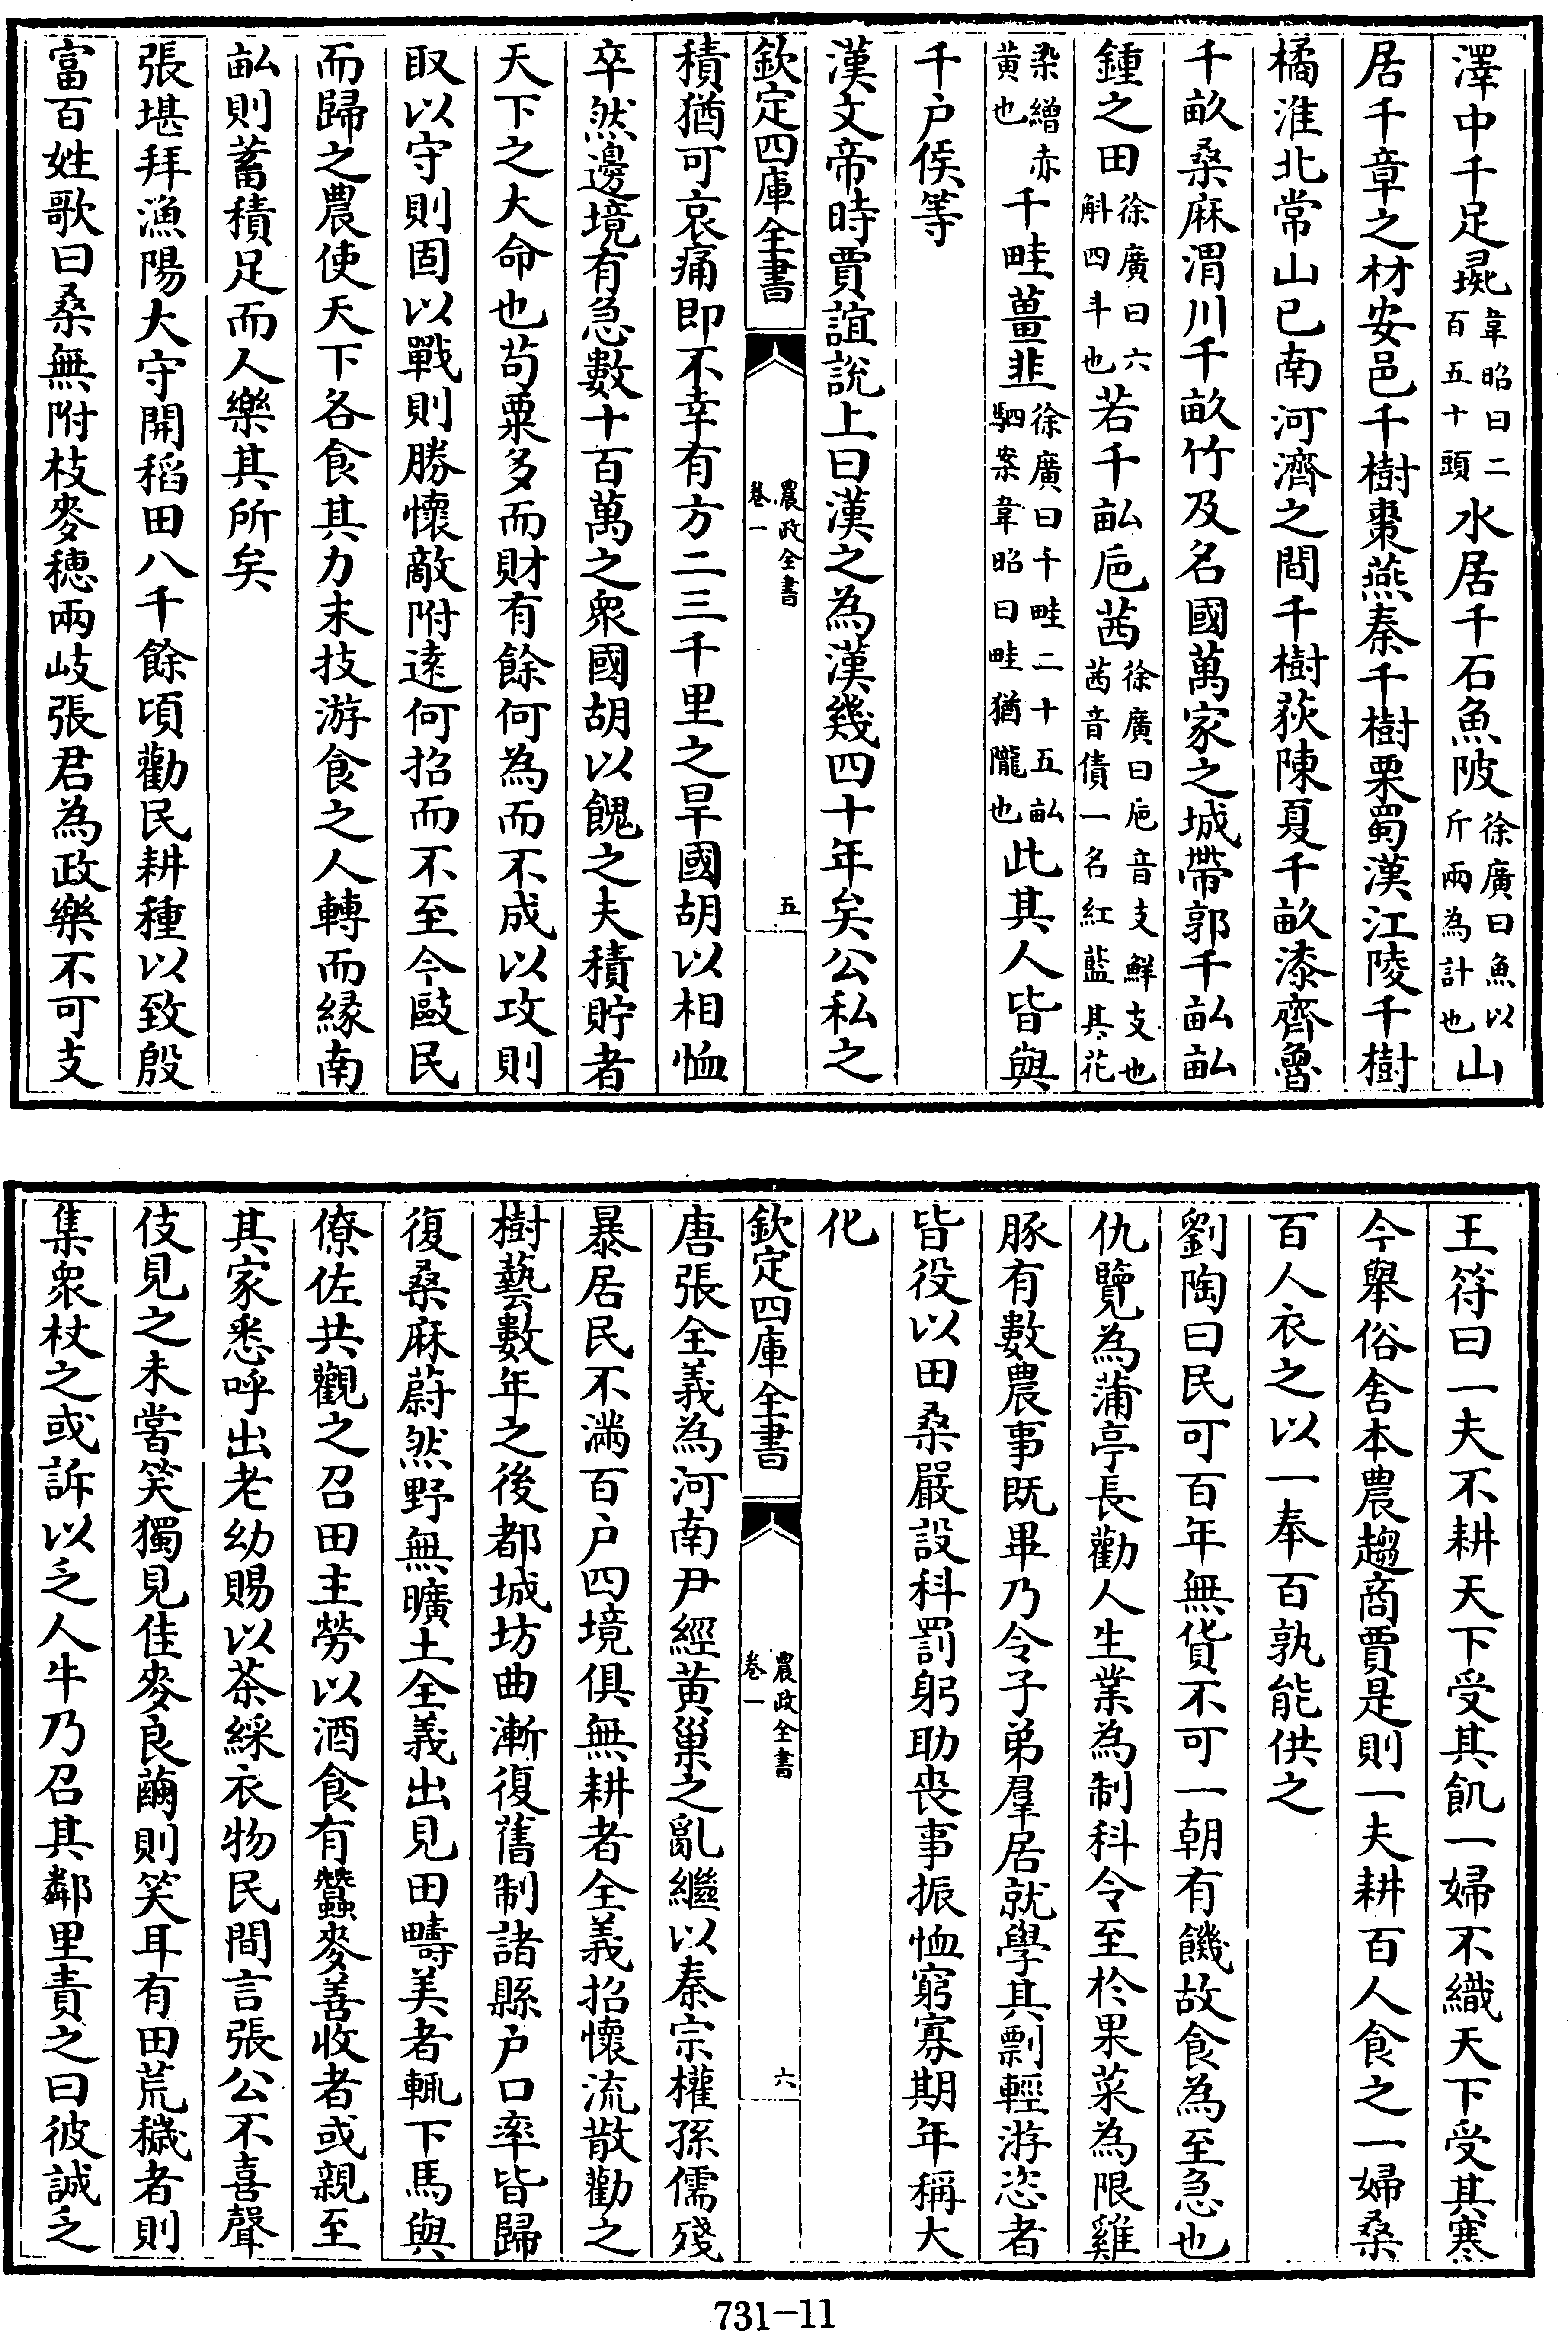 澤中千足彘韋昭曰二百五十頭水居千石魚陂徐廣曰魚以斤兩為計也山
居千章之材安邑千樹棗燕秦千樹栗蜀漢江陵千樹
橘淮北常山已南河濟之間千樹荻陳夏千畝漆齊魯
千畝桑麻渭川千畝竹及名國萬家之城帶郭千畝畝
鍾之田徐廣曰六斛四斗也若千畝巵茜徐廣曰巵音支鮮支也茜音倩一名紅藍其花
染繒赤黃也千畦薑韭徐廣曰千畦二十五畝駟案韋昭曰畦猶隴也此其人皆與
千戶侯等
漢文帝時賈誼說上曰漢之為漢幾四十年矣公私之
欽定四庫全書
農政全書
卷一
五
積猶可哀痛即不幸有方二三千里之旱國胡以相恤
卒然邊境有急數十百萬之眾國胡以餽之夫積貯者
天下之大命也苟粟多而財有餘何為而不成以攻則
取以守則固以戰則勝懷敵附遠何招而不至今毆民
而歸之農使天下各食其力末技游食之人轉而緣南
畝則蓄積足而人樂其所矣
張堪拜漁陽大守開稻田八千餘頃勸民耕種以致殷
富百姓歌曰桑無附枝麥穗兩岐張君為政樂不可支
王符曰一夫不耕天下受其飢一婦不織天下受其寒
今舉俗舍本農趨商賈是則一夫耕百人食之一婦桑
百人衣之以一奉百孰能供之
劉陶曰民可百年無貨不可一朝有饑故食為至急也
仇覽為蒲亭長勸人生業為制科令至於果菜為限雞
豚有數農事既畢乃令子弟羣居就學其剽輕游恣者
皆役以田桑嚴設科罰躬助喪事振恤窮寡期年稱大
化
欽定四庫全書
農政全書
卷一
六
唐張全義為河南尹經黃巢之亂繼以秦宗權孫儒殘
暴居民不滿百戶四境俱無耕者全義招懷流散勸之
樹藝數年之後都城坊曲漸復舊制諸縣戶口率皆歸
復桑麻蔚然野無曠土全義出見田疇美者輒下馬與
僚佐共觀之召田主勞以酒食有蠶麥善收者或親至
其家悉呼出老幼賜以茶綵衣物民間言張公不喜聲
伎見之未嘗笑獨見佳麥良繭則笑耳有田荒穢者則
集眾杖之或訴以乏人牛乃召其鄰里責之曰彼誠乏
731-11